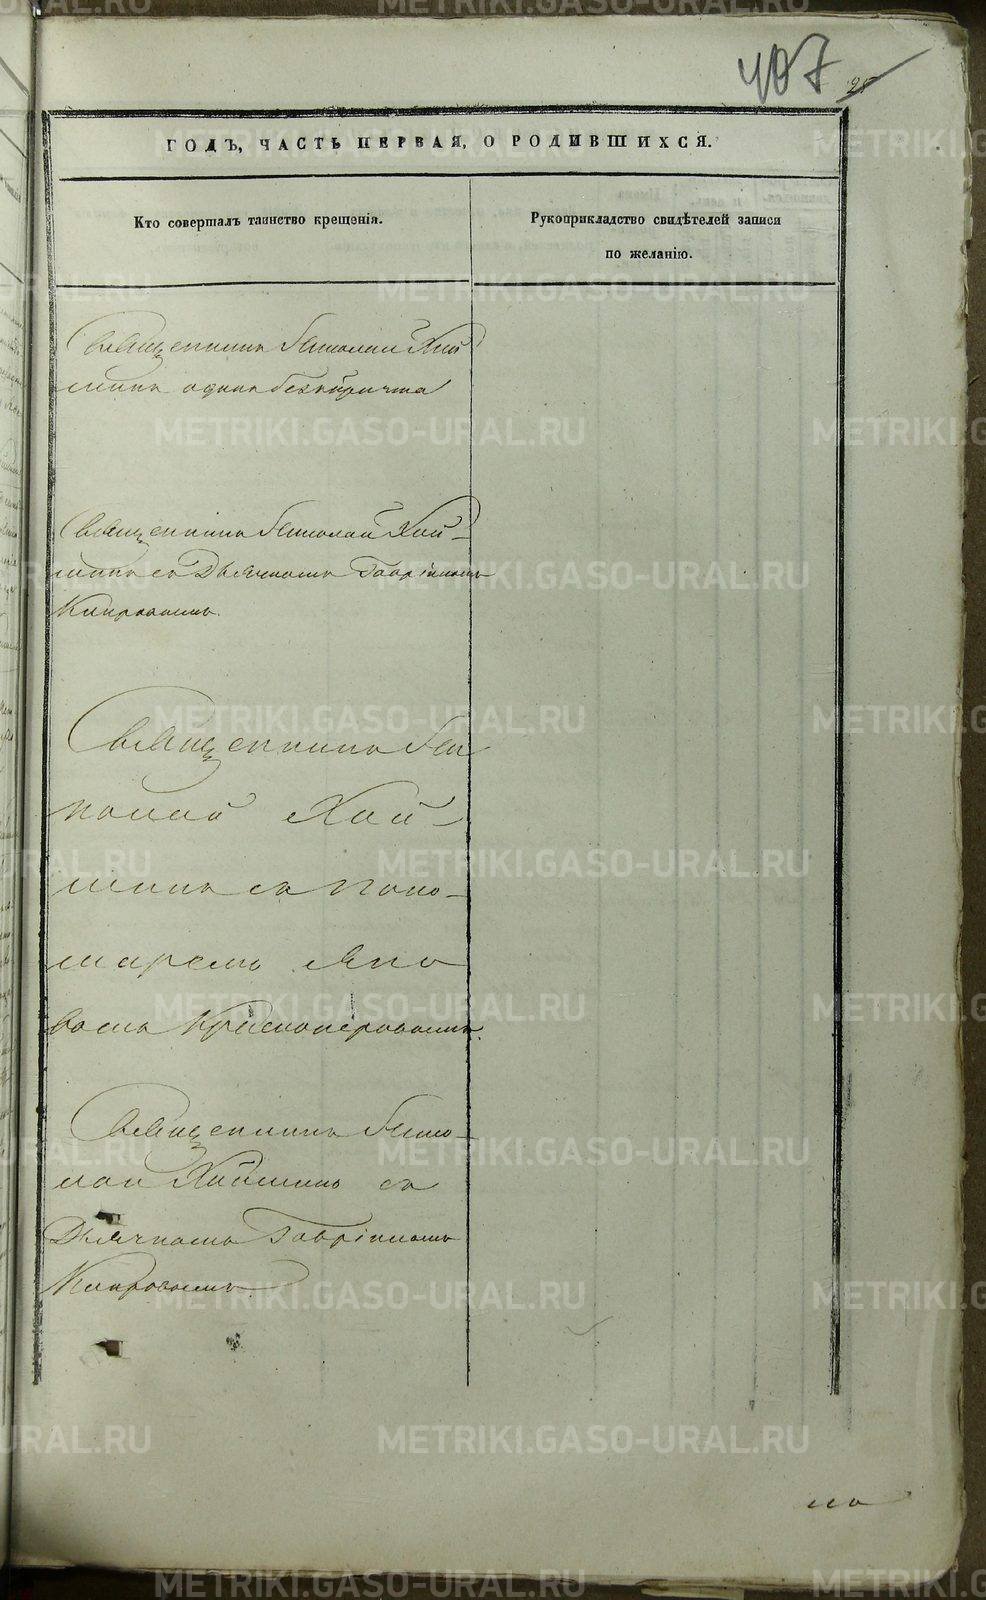 407
ГОДЪ, ЧАСТЬ ПЕРВАЯ, О РОДИВШИХСЯ.
Кто совершалъ таинство крещенія.
Рукоприкладство свидѣтелей записи
по желанію.
Священникъ Николай Хай
минъ одинъ безъ причта
Священникъ Николай Хай-
минъ съ Дьячкомъ Гавріиломъ
Кипровымъ.
Священникъ Ни
колай Хай-
минъ съ Поно-
маремъ Яко
вомъ Красноперовымъ.
Священникъ Нико-
лай Хайминъ съ
Дьячкомъ Гавріиломъ
Кипровымъ.
METRIKI.GASO-URAL.RU